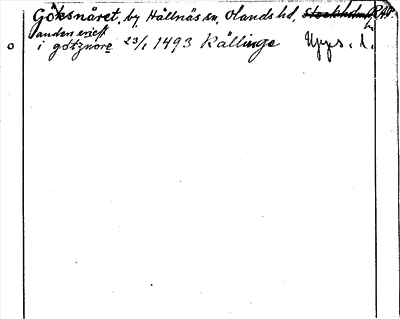 Göksnåret, by, Hållnäs sn, Olands hd, Stockholms RA.
anders ericss
i götznore 23/1 1493 Källinge Upps. l.